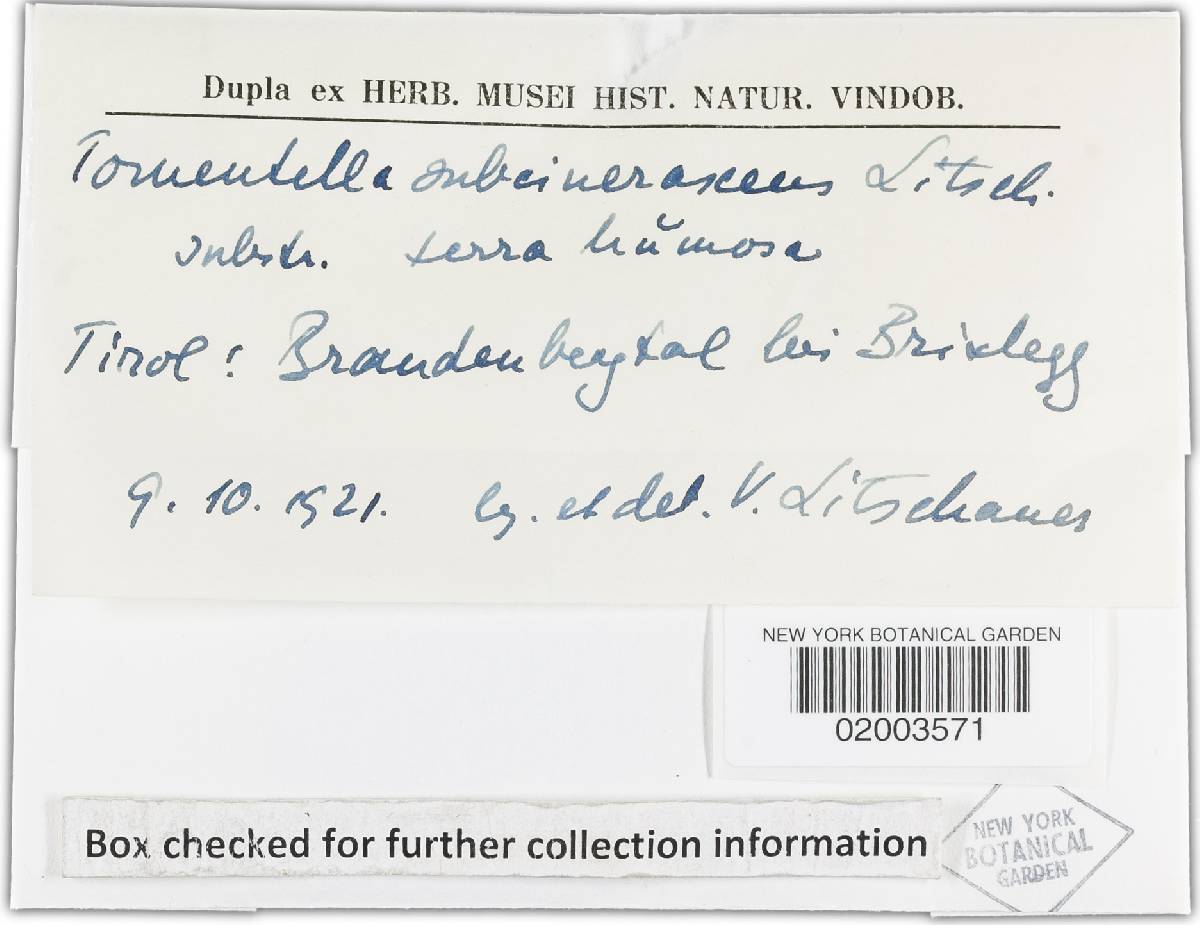 Dupla ex HERB. MUSEI HIST. NATUR. VINDOB.
Tomentella subcinerascens Litsch.
substr. terra hŭmosa
Tirol: Brandenbergtal bei Brixlegg
9. 10. 1921. lg. et det. V. Litschauer
NEW YORK BOTANICAL GARDEN
02003571
Box checked for further collection information
NEW YORK
BOTANICAL
GARDEN